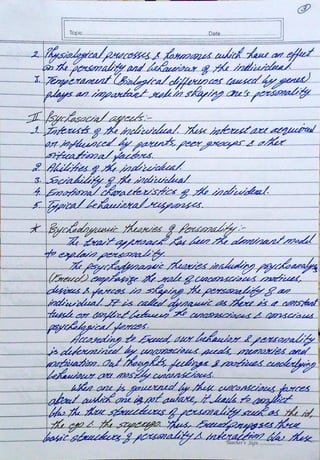 3
Topic Date
2. Physiological processes & hormones which have an effect
on the personality and behaviour of the individual
3. Temperament (Biological differences caused by genes)
plays an important role in shaping one's personality
II Psychosocial aspects:-
1. Interests of the individual. These interest are acquired
or influenced by parents, peer groups & other
situational factors.
2. Abilities of the individual
3. Sociability of the individual
4. Emotional characteristics of the individual.
5. Typical behavioral responses.
* Psychodynamic theories of Personality:-
The trait approach has been the dominant model
to explain personality.
The psychodynamic theories including psychoanalysis
(Freud) emphasize the role of unconscious motives,
desires & forces in shaping the personality of an
individual. It is called dynamic as there is a constant
tussle or conflict between the unconscious & conscious
psychological forces.
According to Freud, our behaviour & personality
is determined by unconscious needs, memories and
motivation. Our thoughts, feelings & motives underlying
behaviour are mostly unconscious.
When one is governed by these unconscious forces
about which one is not aware, it leads to conflict
b/w the three structures of personality such as the id,
the ego & the superego. Thus, Freud proposes three
basic structures of personality & interaction b/w these
Teacher's Sign